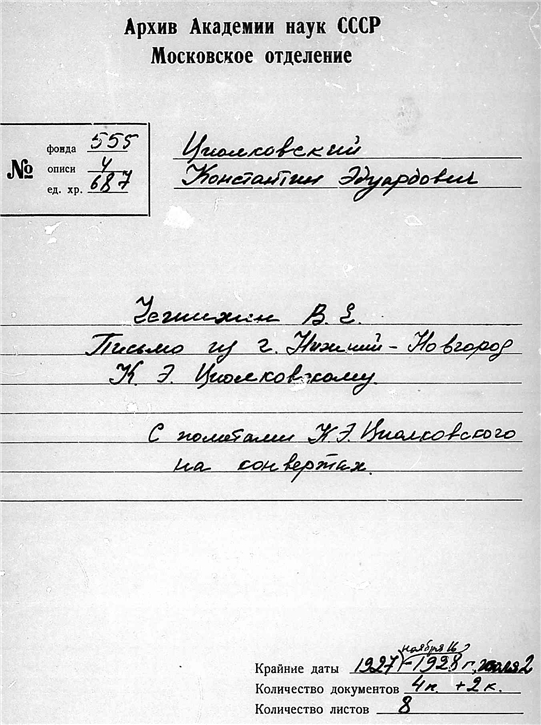 Архив Академии наук СССР
Московское отделение
№
фонда 555
описи 4
ед. хр. 687
Циолковский
Константин Эдуардович
Чешихин В. Е.
Письмо из г. Нижний-Новгород
К. Э. Циолковскому.
С пометами К.Э. Циолковского
на конвертах.
ноября 16
Крайние даты 1927-1928 г., июля 2
Количество документов 4 п. + 2 к.
Количество листов 8